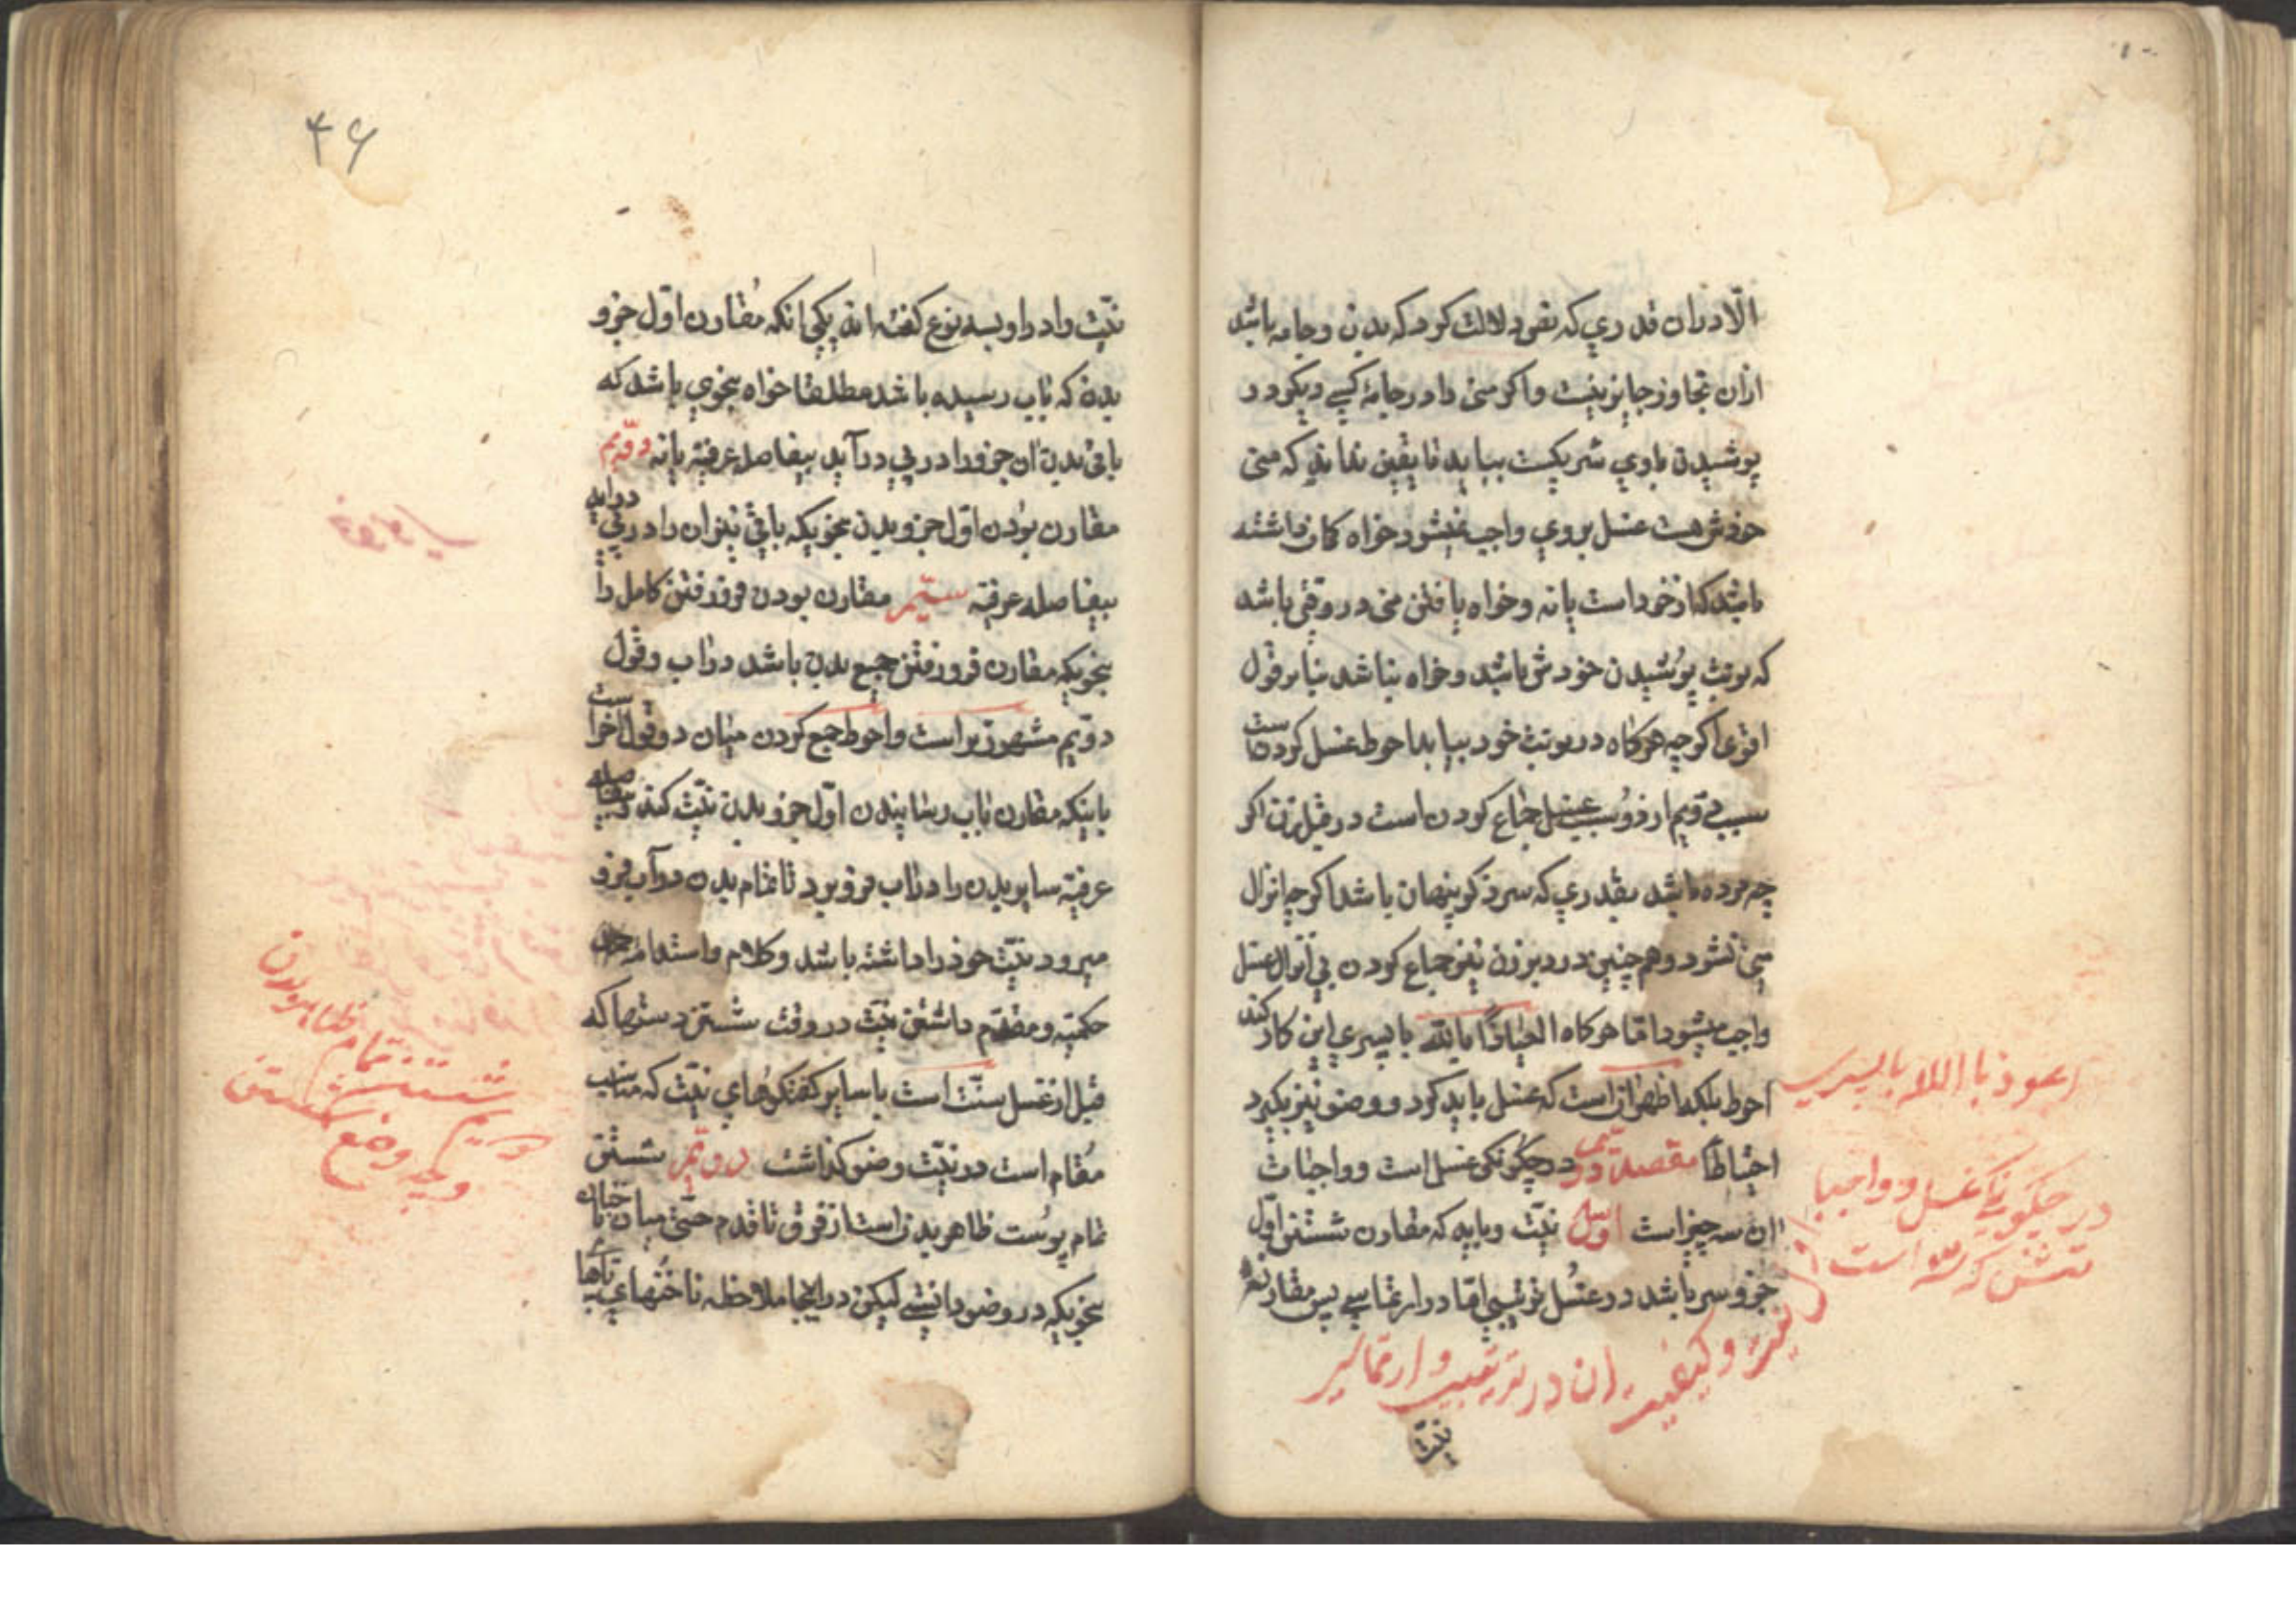 الّا دران قدری که نفوذ دلالت کرد که بدن و جامه باشد
ازان تجاوز جایز نیست و اکر منی را در جامهٔ کسی دیکر در
پوشیدن باوی شریکست بیابد تا یقین نداند که منی
خودش هست غسل بروی واجب نمیشود خواه کمان داشته
باشد که از خود است یا نه و خواه یافتن منی در وقتی باشد
که نوبت پوشیدن خودش باشد و خواه نباشد بنابر قول
اقوی اکرچه هرکاه در نوبت خود بیابد احوط غسل کردنست
سبب دویم از دو سبب غسل جماع کردن است در قبل زن اکر
چه مرده باشد بقدری که سر ذکر پنهان باشد اکرچه انزال
منی نشود و همچنین در دبر زن نیز جماع کردن بی انزال غسل
واجب میشود امّا هرکاه العیاذاً بالله با پسری این کار کند
احوط بلکه اظهر آن است که غسل باید کرد و وضو نیز بکیرد
احتیاطاً مقصد دویّم در چکونکی غسل است و واجبات
ان سه چیز است اوّل نیّت و باید که مقارن شستن اوّل
جزو سر باشد در غسل ترتیبی امّا در ارتماسی پس مقارنهٔ
اعوذ با اللا با پسری
در چکونکی غسل و واجبا
تش که سه است
اوّل نیت و کیفیت ان در ترتیب و ارتماسی
نیّت
۴۶
نیّت را در او بسه نوع کفته اند یکی انکه مُقارن اوّل جزو
بدن که بآب رسیده باشد مطلقا خواه بنحوی باشد که
باقی بدن ان جزو را در پی درآید بیفاصله عرفیّه یا نه دوّیم
مقارن بودن اوّل جزو بدن بنحویکه باقی نیز ان را در پی درآید
بیفاصله عرفیّه سیّم مقارن بودن فرو رفتن کامل را
بنحویکه مقارن فرو رفتن جمیع بدن باشد در آب و قول
دویّم مشهورتر است و احوط جمع کردن میان دو قول اخر است
باینکه مقارن بآب رسانیدن اوّل جزو بدن نیّت کند و بیفاصله
عرفیّه سایر بدن را در آب فرو برد تا تمام بدن در آب فرو
میرود نیّت خود را داشته باشد و کلام و استدامهٔ
حکمیّه و مقدّم داشتن نیّت در وقت شستن دستها که
قبل از غسل سنّت است با سایر کفتکوهای نیّت که مناسب
مُقام است در نیّت وضو کذاشت دویّم شستن
تمام پوست ظاهر بدن است از فرق تا قدم حتی میان
بنحویکه در وضو دانستی لیکن در اینجا ملاحظه ناخنهای پاها
دویم شستن تمام ظاهر بدن